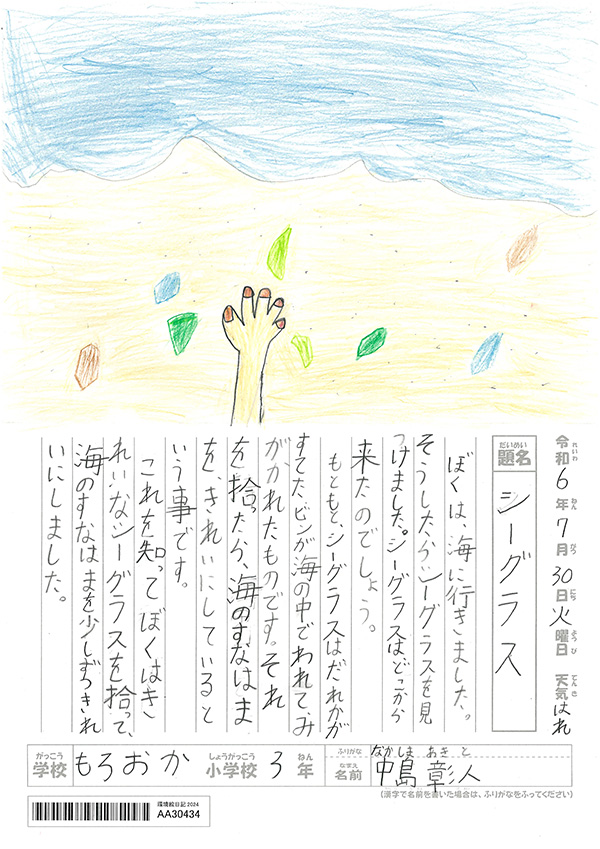 令和6年7月30日火曜日 天気はれ
れいわ ねん がつ にち ようび てんき
だいめい
題名 シーグラス
ぼくは、海に行きました。
そうしたらシーグラスを見
つけました。シーグラスはどこから
来たのでしょう。
もともと、シーグラスはだれかが
すてた、ビンが海の中でわれて、み
がかれたものです。それ
を拾ったら、海のすなはま
をきれいにしていると
いう事です。
これを知ってぼくはき
れいなシーグラスを拾って、
海のすなはまを少しずつきれ
いにしました。
がっこう しょうがっこう ねん ふりがな なかしま あきと
学校 もろおか 小学校 3年 なまえ 名前 中島彰人
(漢字で名前を書いた場合は、ふりがなをふってください)
環境絵日記2024
AA30434